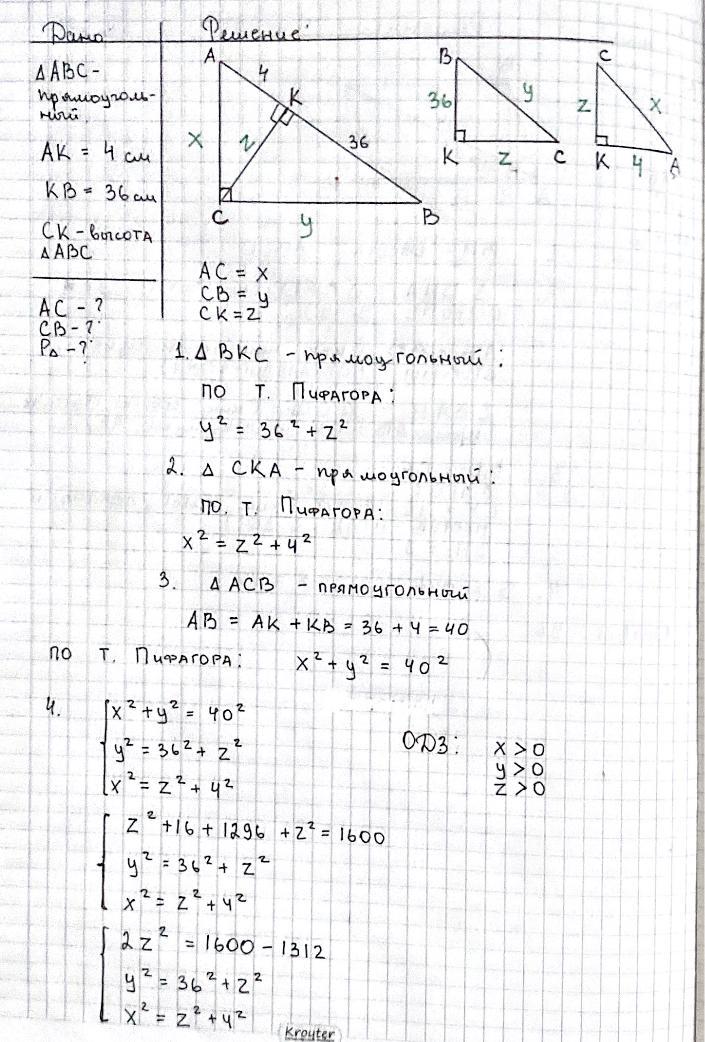 Дано:
Решение:
△ABC -
прямоуголь-
ный.
AK = 4 см
KB = 36 см
CK - высота
△ABC
AC - ?
CB - ?
P△ - ?
A
4
K
x
z
36
C
y
B
B
36
y
K
z
C
C
z
x
K
4
A
AC = x
CB = y
CK = z
1. △ BKC - прямоугольный:
по т. Пифагора:
y² = 36² + z²
2. △ CKA - прямоугольный:
по. т. Пифагора:
x² = z² + 4²
3. △ ACB - прямоугольный
AB = AK + KB = 36 + 4 = 40
по т. Пифагора: x² + y² = 40²
4. x² + y² = 40²
y² = 36² + z²
x² = z² + 4²
ОДЗ: x > 0
y > 0
z > 0
z² + 16 + 1296 + z² = 1600
y² = 36² + z²
x² = z² + 4²
2z² = 1600 - 1312
y² = 36² + z²
x² = z² + 4²
Kroyter